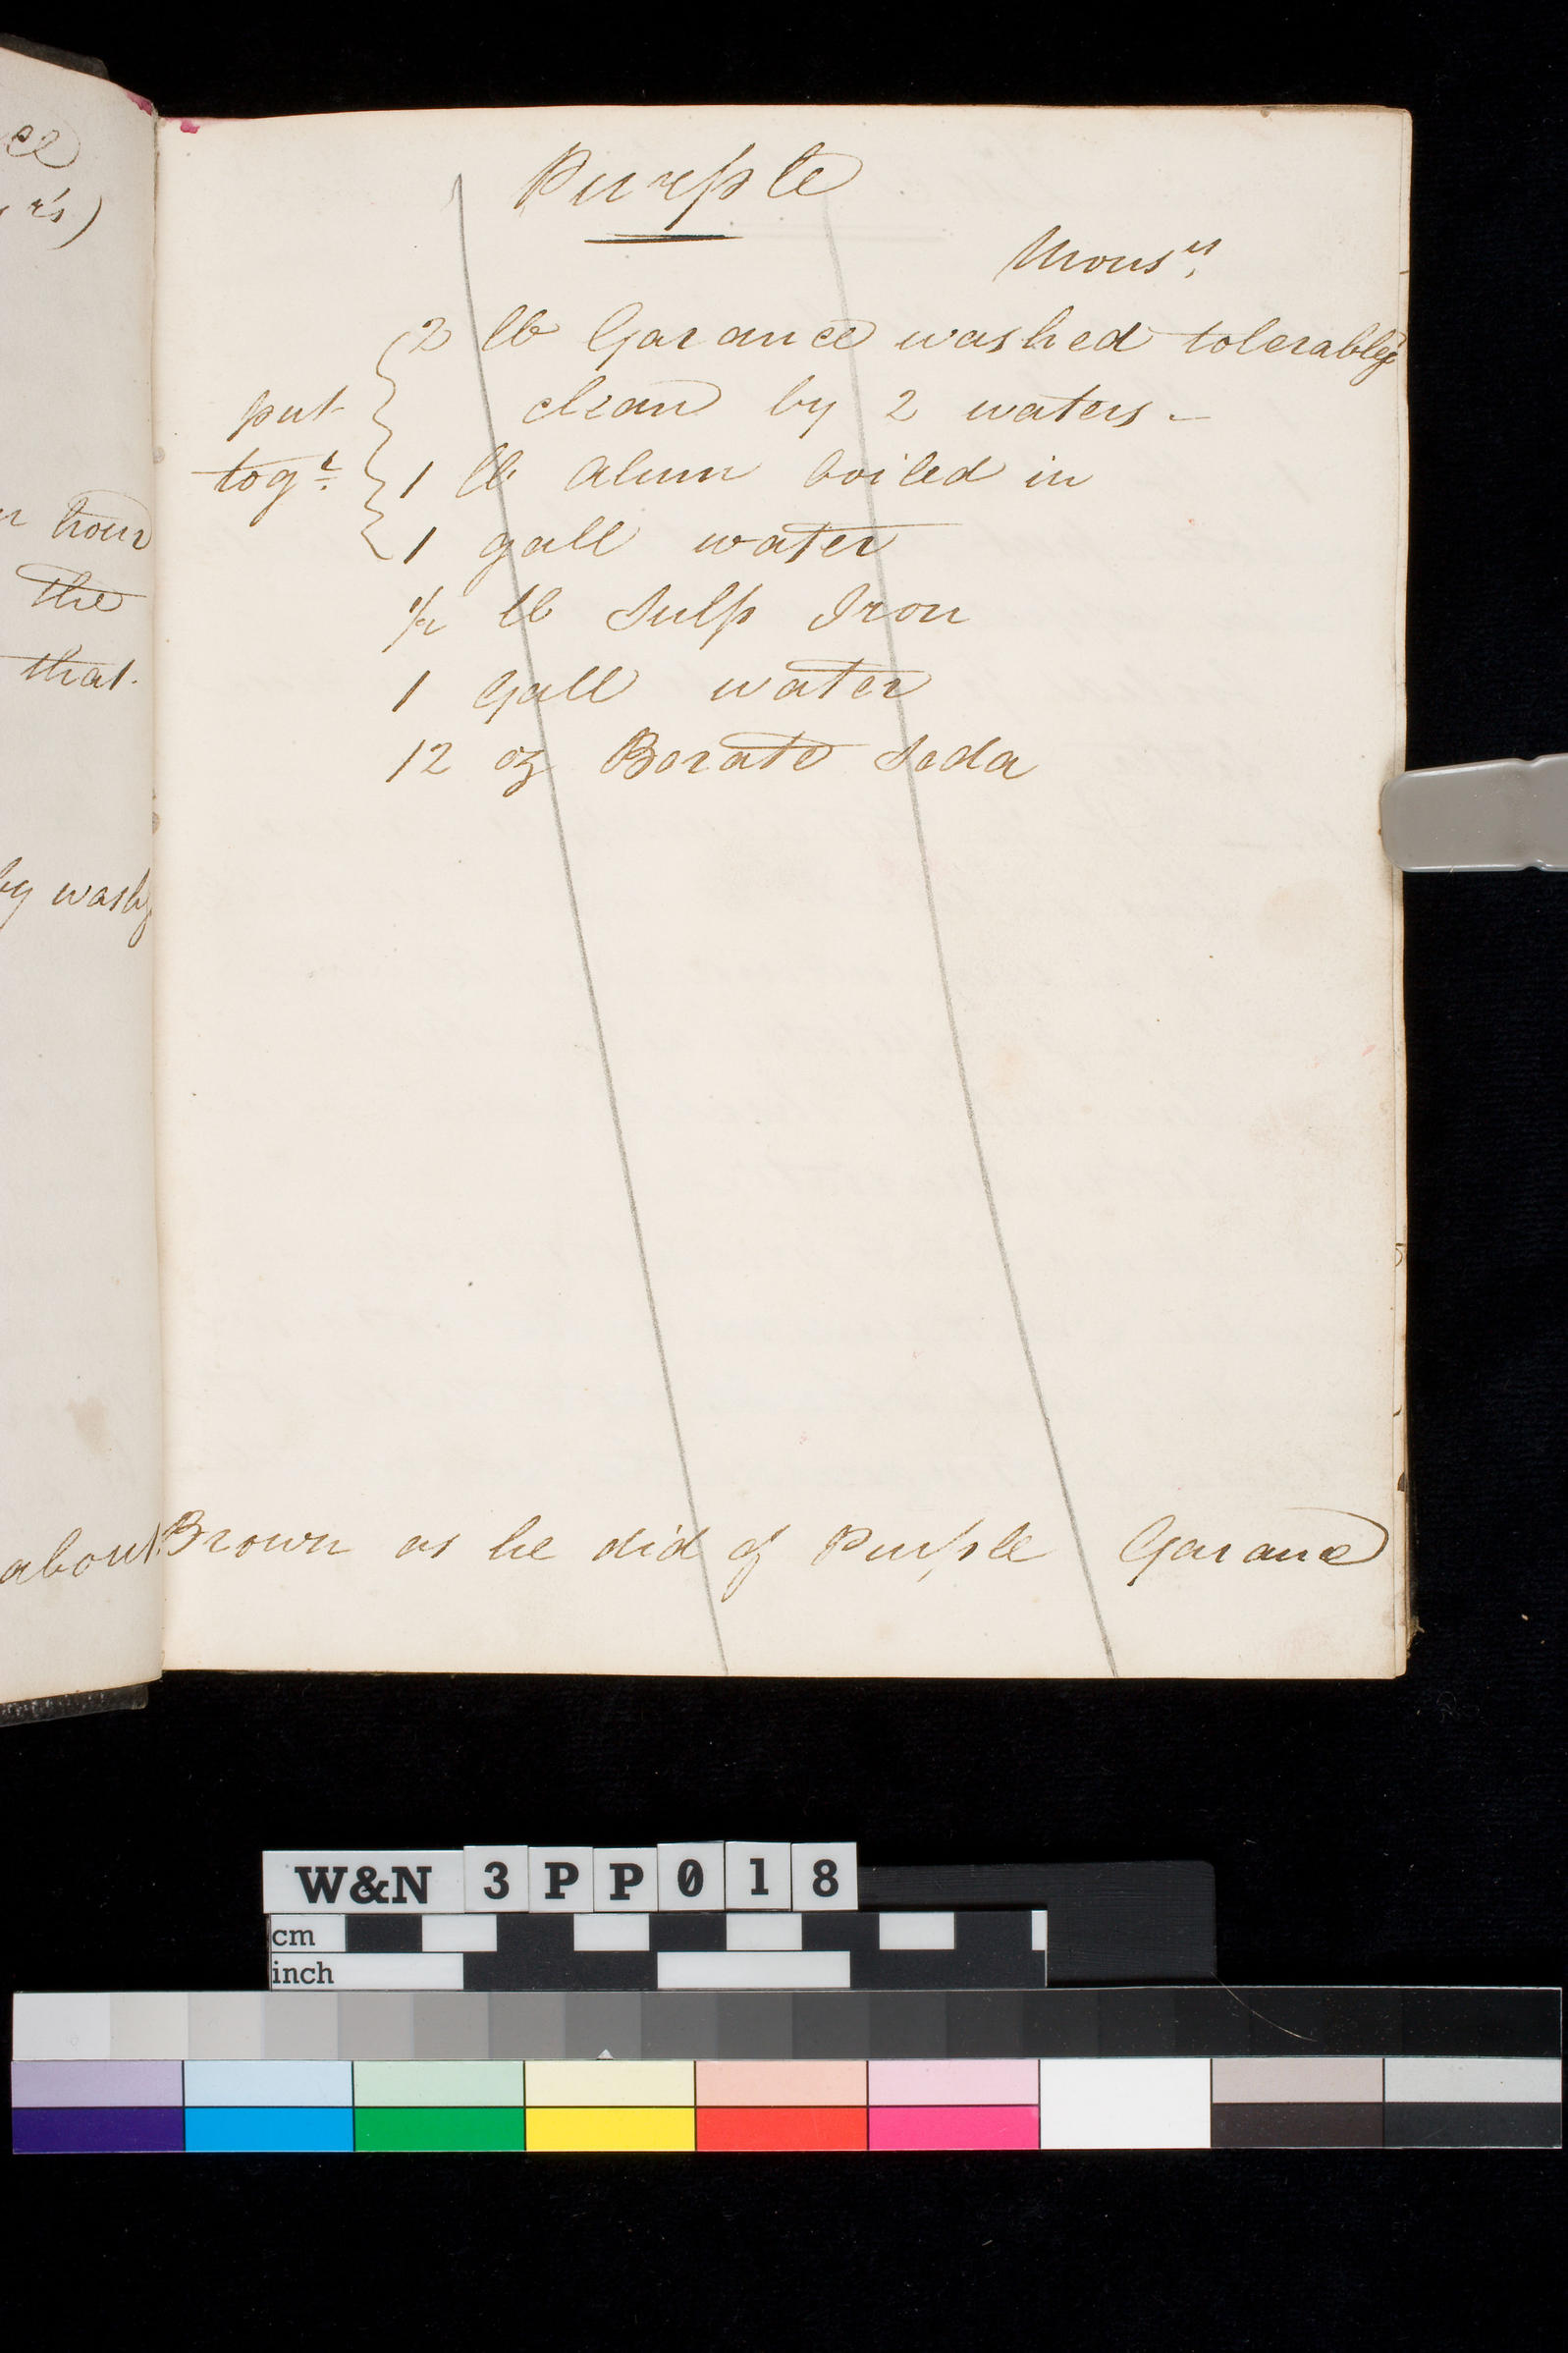 ce
rs)
hour
the
that.
by washg
about
Purple
Monsr.
2 lb Garance washed tolerably
put clean by 2 waters -
togr. 1 lb Alum boiled in
1 gall water
1/2 lb Sulp Iron
1 Gall water
12 oz Borate Soda
Brown as he did of Purple Garance
W&N 3PP018
cm
inch